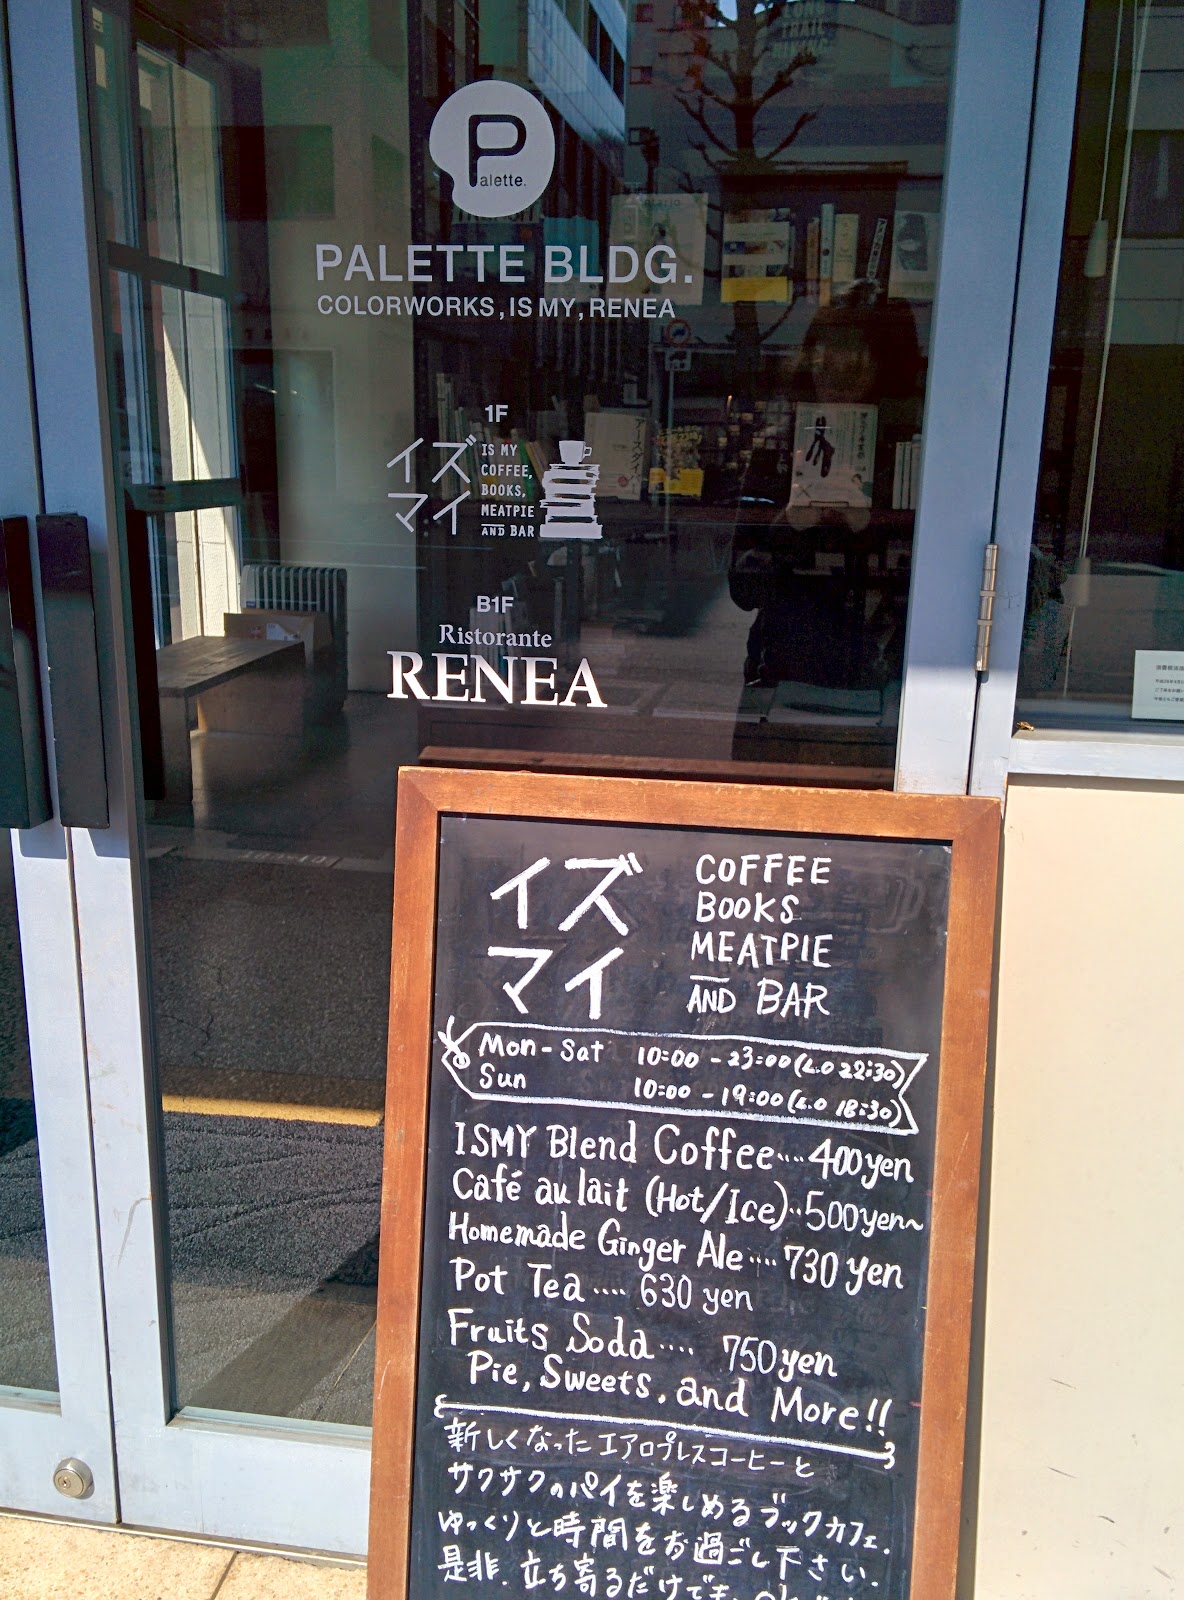 P
alette.
PALETTE BLDG.
COLORWORKS, IS MY, RENEA
1F
イズ
マイ
IS MY
COFFEE,
BOOKS,
MEATPIE
AND BAR
B1F
Ristorante
RENEA
イズ
マイ
COFFEE
BOOKS
MEATPIE
AND BAR
Mon-Sat 10:00-23:00(L.O 22:30)
Sun 10:00-19:00(L.O 18:30)
ISMY Blend Coffee....400yen
Café au lait (Hot/Ice)..500yen~
Homemade Ginger Ale....730 yen
Pot Tea....630 yen
Fruits Soda.... 750yen
Pie, Sweets, and More!!
新しくなったエアロプレスコーヒーと
サクサクのパイを楽しめるブックカフェ.
ゆっくりと時間をお過ごし下さい.
是非.立ち寄るだけでも、